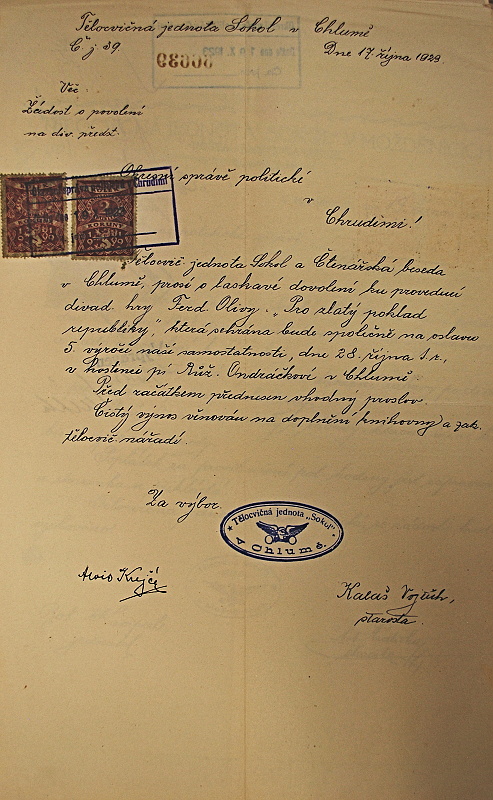 Tělocvičná jednota Sokol v Chlumě
Č. j. 39.
Dne 17. října 1923.
Věc:
Žádost o povolení
na div. předst.
Okresní správě politické
v
Chrudimi!
Tělocvič. jednota Sokol a Čtenářská beseda
v Chlumě, prosí o laskavé dovolení ku provedení
divad. hry Ferd. Olivy: „Pro zlatý poklad
republiky," která sehrána bude společně na oslavu
5. výročí naší samostatnosti, dne 28. října t. r.,
v hostinci pí Růž. Ondráčkové v Chlumě.
Před začátkem přednesen vhodný proslov.
Čistý výnos věnován na doplnění knihovny a zak.
tělocvič. nářadí.
Za výbor:
Tělocvičná jednota „Sokol"
v Chlumě.
Alois Krejčí
Kalaš Vojtěch,
starosta.